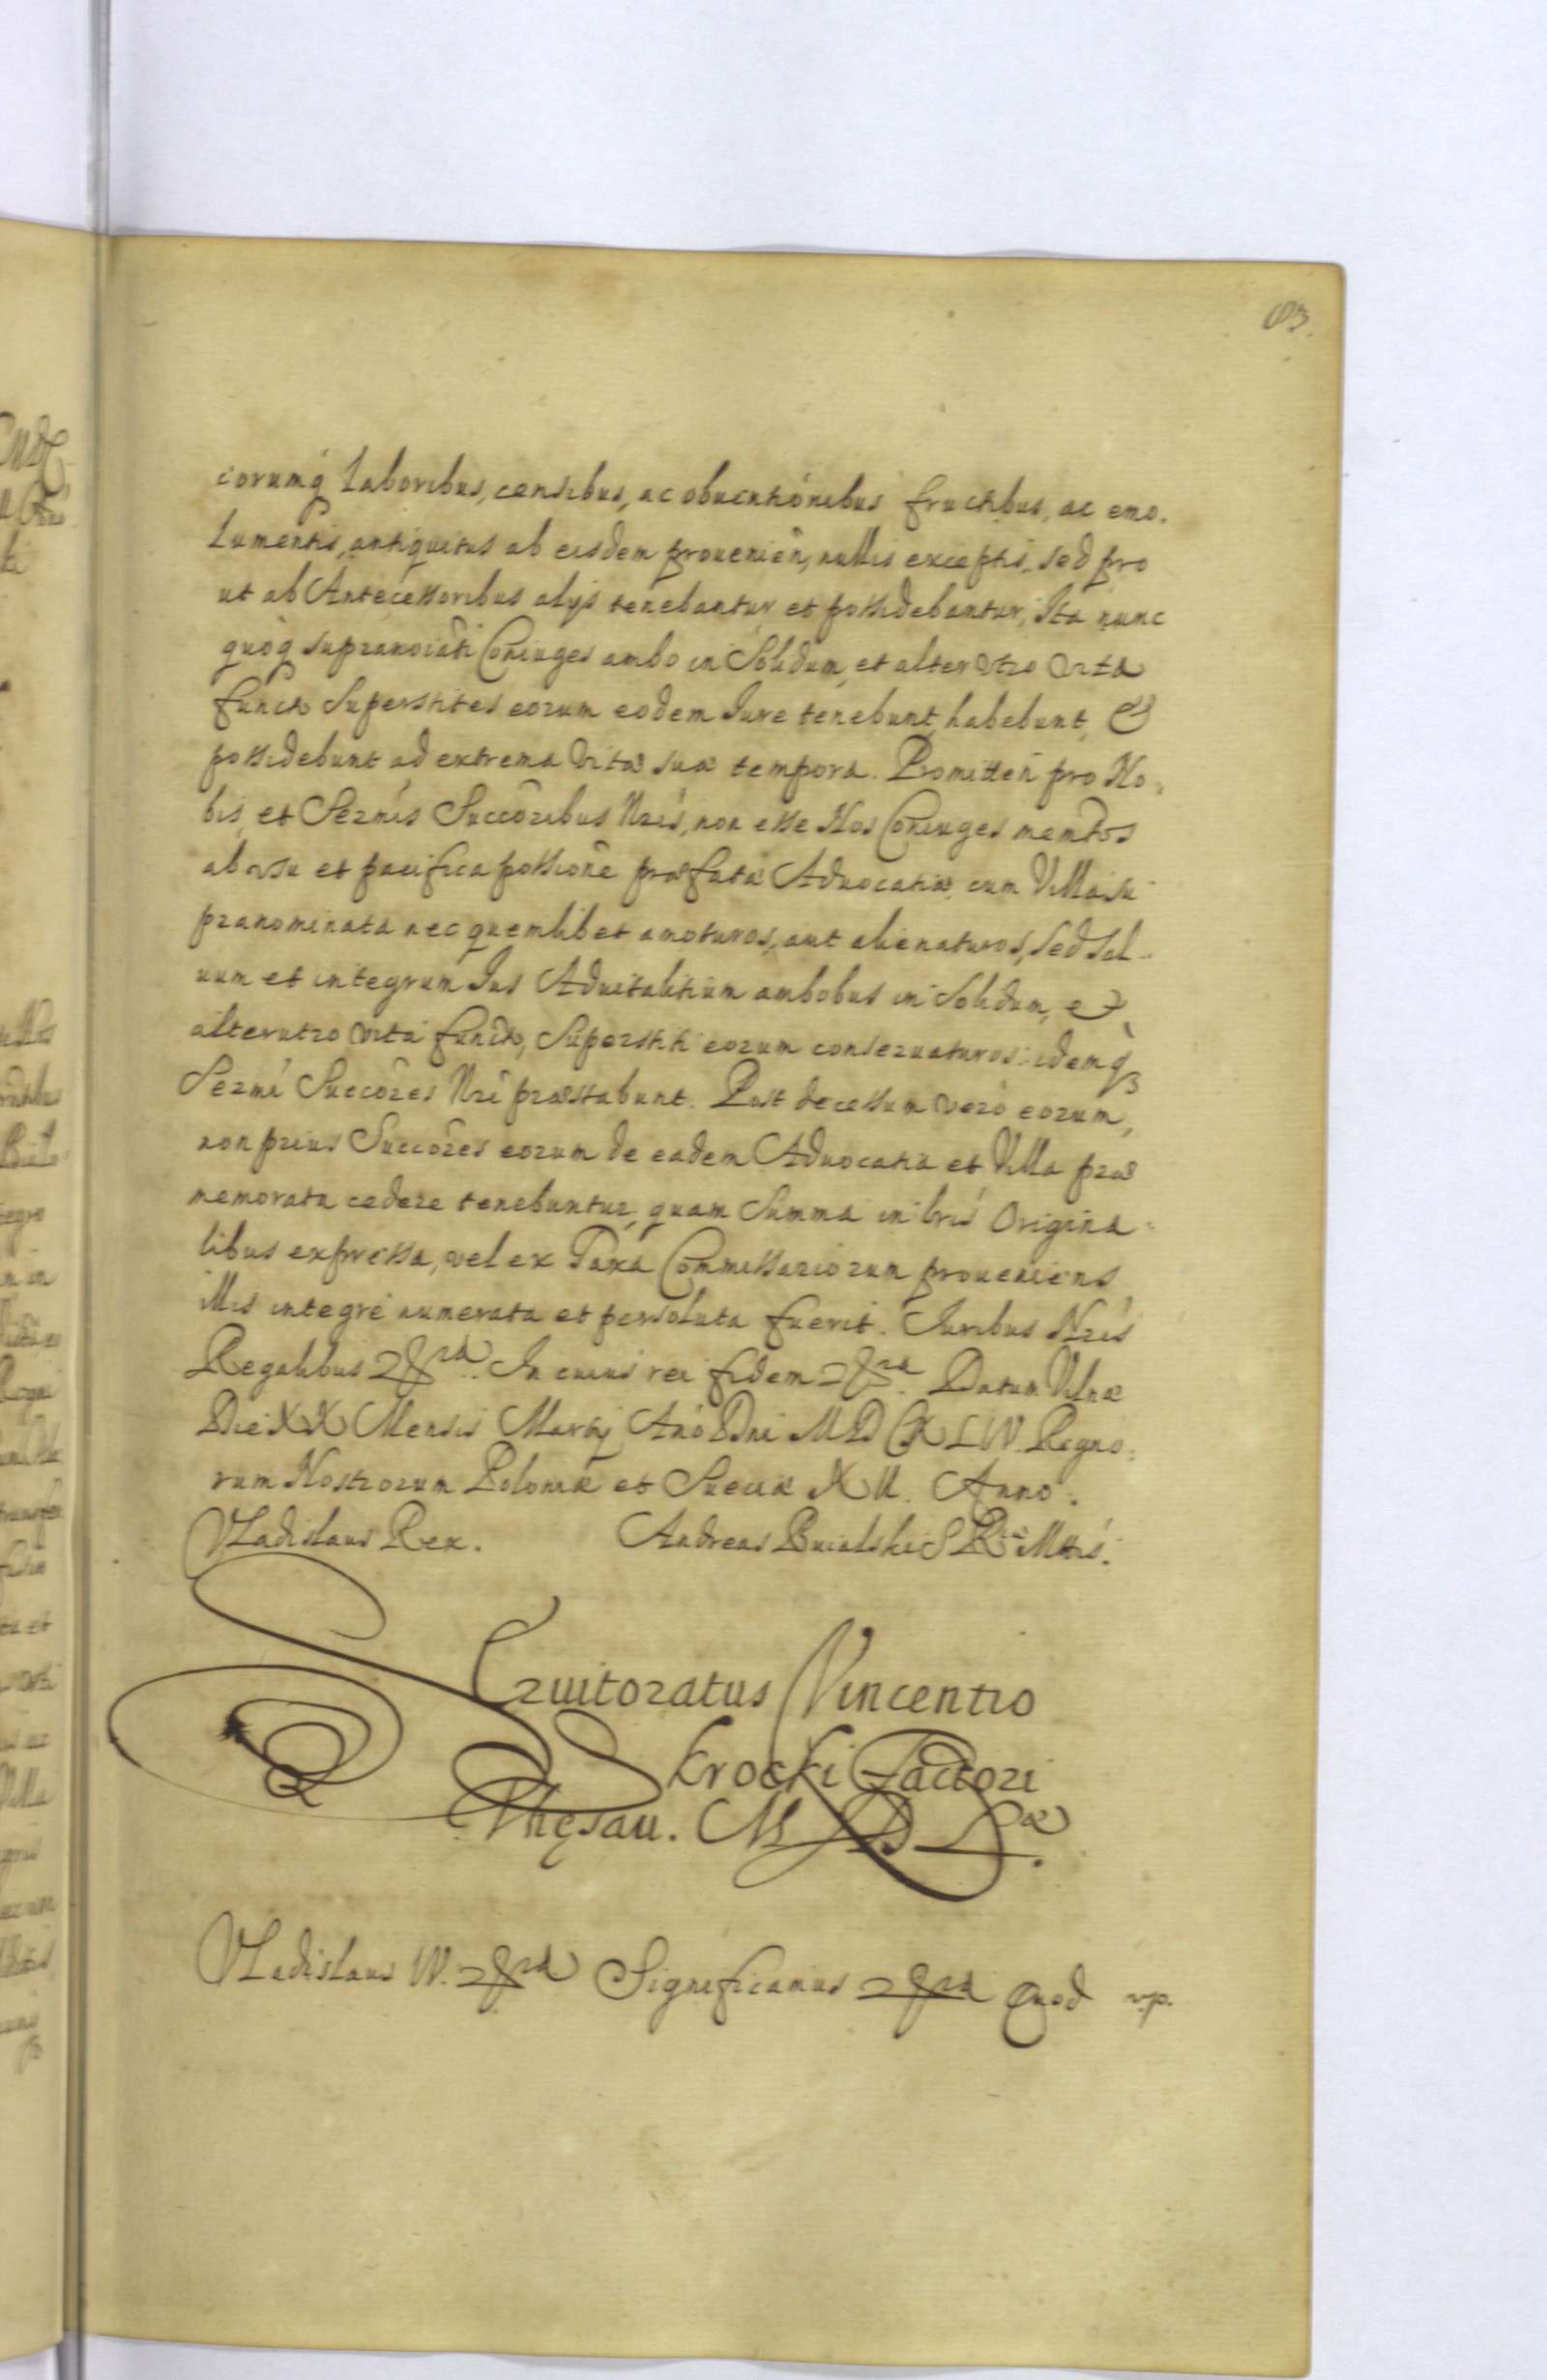 83.
eorumq laboribus, censibus, ac obventiónibus fructibus, ac emo-
lumentis, antiquitus ab eisdem prouenien̄, nullis exceptis, sed pro
ut ab Antecessoribus alijs tenebantur et possidebantur, Ita nunc
quoq supranoīati Coniuges ambo in Solidum, et alter vtro vita
functo Superstites eorum eodem Iure tenebunt, habebunt, &
possidebunt ad extrema vitæ suæ tempora. Promitten̄ pro No-
bis, et Sermis Succōribus Nris, non esse Nos Coniuges mēmtos
ab vsu et pacifica possione præfatæ Aduocatiæ cum Villa su
pranominata nec quemlibet amoturos, aut alienaturos, sed sal-
uum et integrum Ius Aduitalitium ambobus in solidum, et
alterutro vita functo, Superstiti eorum conseruaturos: idemq
Sermi Succōres Nri præstabunt. Post decessum verò eorum,
non prius Succōres eorum de eadem Aduocatia et Villa præ
memorata cedere tenebuntur, quam Summa in lris Origina-
libus expressa, vel ex Taxa Commissariorum proueniens
illis integrè numerata et persoluta fuerit. Iuribus Nris
Regalibus &ra. In cuius rei fidem &ra. Datum Vilnæ
Die XX Mensis Martij Año Dni MDCXLIV. Regno-
rum Nostrorum Poloniæ et Sueciæ XII. Anno.
Vladislaus Rex. Andreas Buialski S R Mtis.
Seruitoratus Vincentio
Skrocki Factori
Thesau. M D L.
Vladislaus IV. &ra Significamus &ra Quod